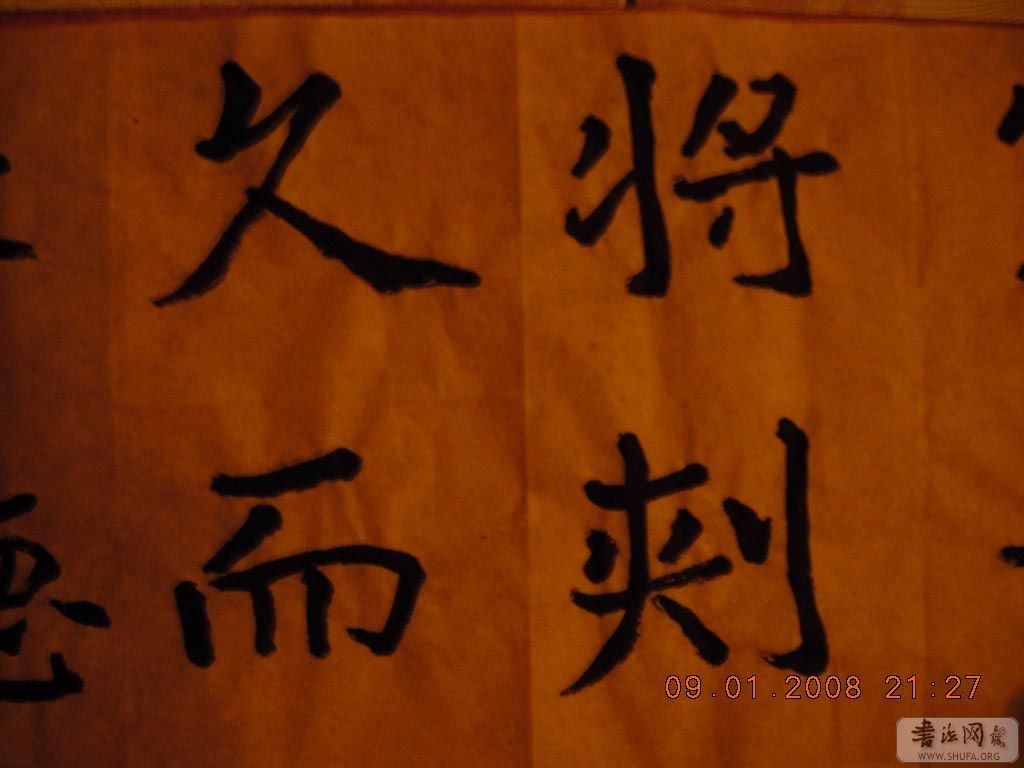 将刺
久而
09.01.2008 21:27
书法网
WWW.SHUFA.ORG